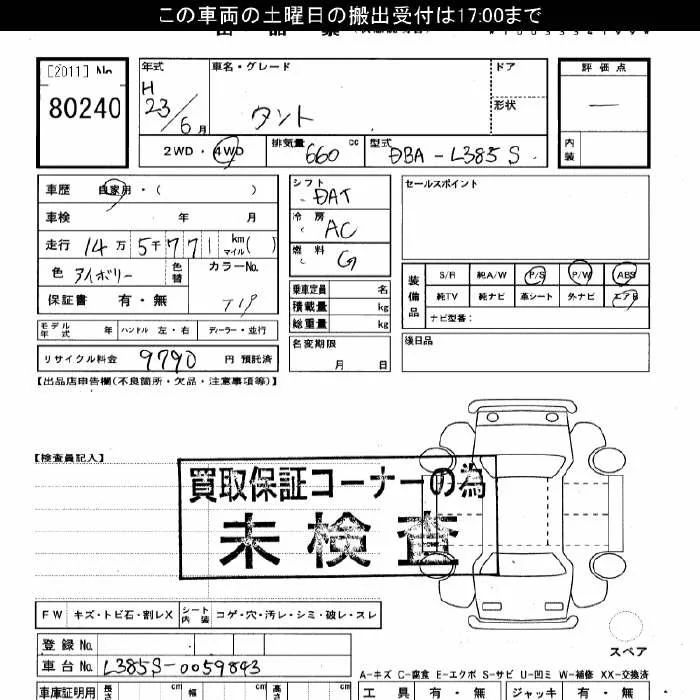 この車両の土曜日の搬出受付は17:00まで
[2011] No
80240
年式
H
23/6月
車名・グレード
タント
ドア
形状
評価点
—
内装
2WD・4WD
排気量 660 cc
型式 DBA-L385S
車歴 自家用・( )
車検 年 月
走行 14万5千771 km マイル( )
色 アイボリー
色替
カラーNo.
T19
保証書 有・無
シフト DAT
冷房 AC
燃料 G
乗車定員 名
積載量 kg
総重量 kg
セールスポイント
装備品
S/R 純A/W P/S P/W ABS
純TV 純ナビ 革シート 外ナビ エアB
ナビ型番:
モデル年式 年 ハンドル 左・右 ディーラー・並行
名変期限
月 日
後日品
リサイクル料金 9790 円 預託済
【出品店申告欄(不良箇所・欠品・注意事項等)】
【検査員記入】
買取保証コーナーの為
未検査
FW キズ・トビ石・割レX シート内装 コゲ・穴・汚レ・シミ・破レ・スレ
スペア
登録No.
車台No. L385S-0059843
A-キズ C-腐食 E-エクボ S-サビ U-凹ミ W-補修 XX-交換済
車庫証明用 長さ cm 幅 cm 高さ cm
工具 有・無 ジャッキ 有・無